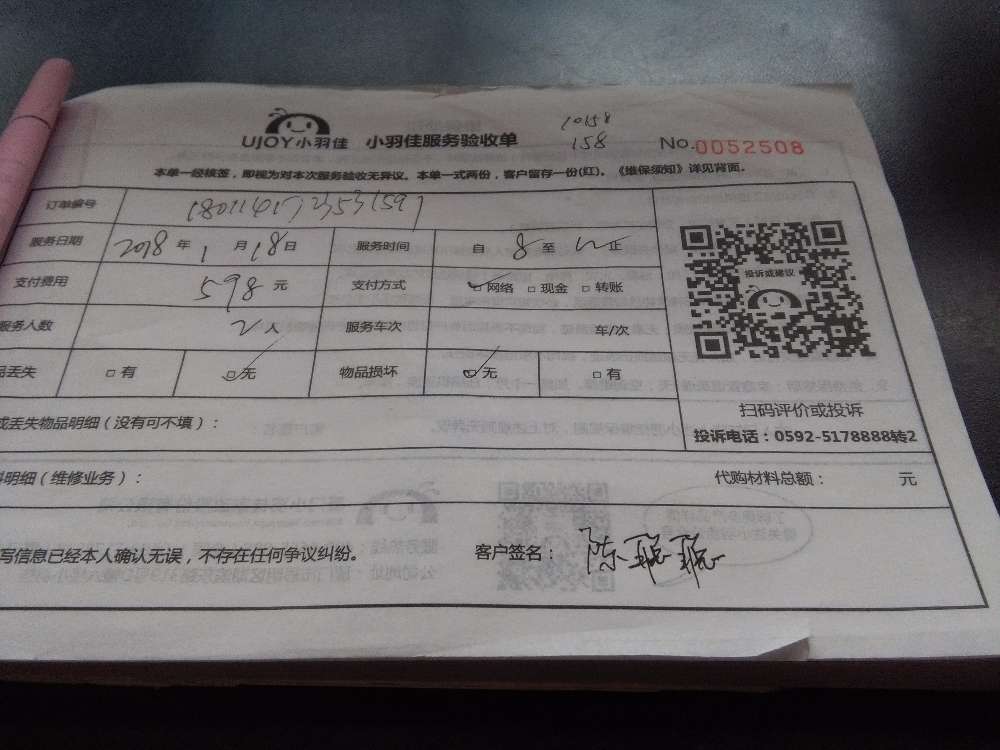 10158
158
UJOY小羽佳 小羽佳服务验收单 No.0052508
本单一经核签，即视为对本次服务验收无异议。本单一式两份，客户留存一份(红)。《维保须知》详见背面。
订单编号
服务日期 2018 年 1 月 18 日 服务时间 自 8 至 12 止
支付费用 598 元 支付方式 网络 现金 转账
服务人数 2 人 服务车次 车/次
品丢失 有 无 物品损坏 无 有
投诉或建议
扫码评价或投诉
投诉电话：0592-5178888转2
或丢失物品明细（没有可不填）：
料明细（维修业务）： 代购材料总额： 元
写信息已经本人确认无误，不存在任何争议纠纷。 客户签名： 陈